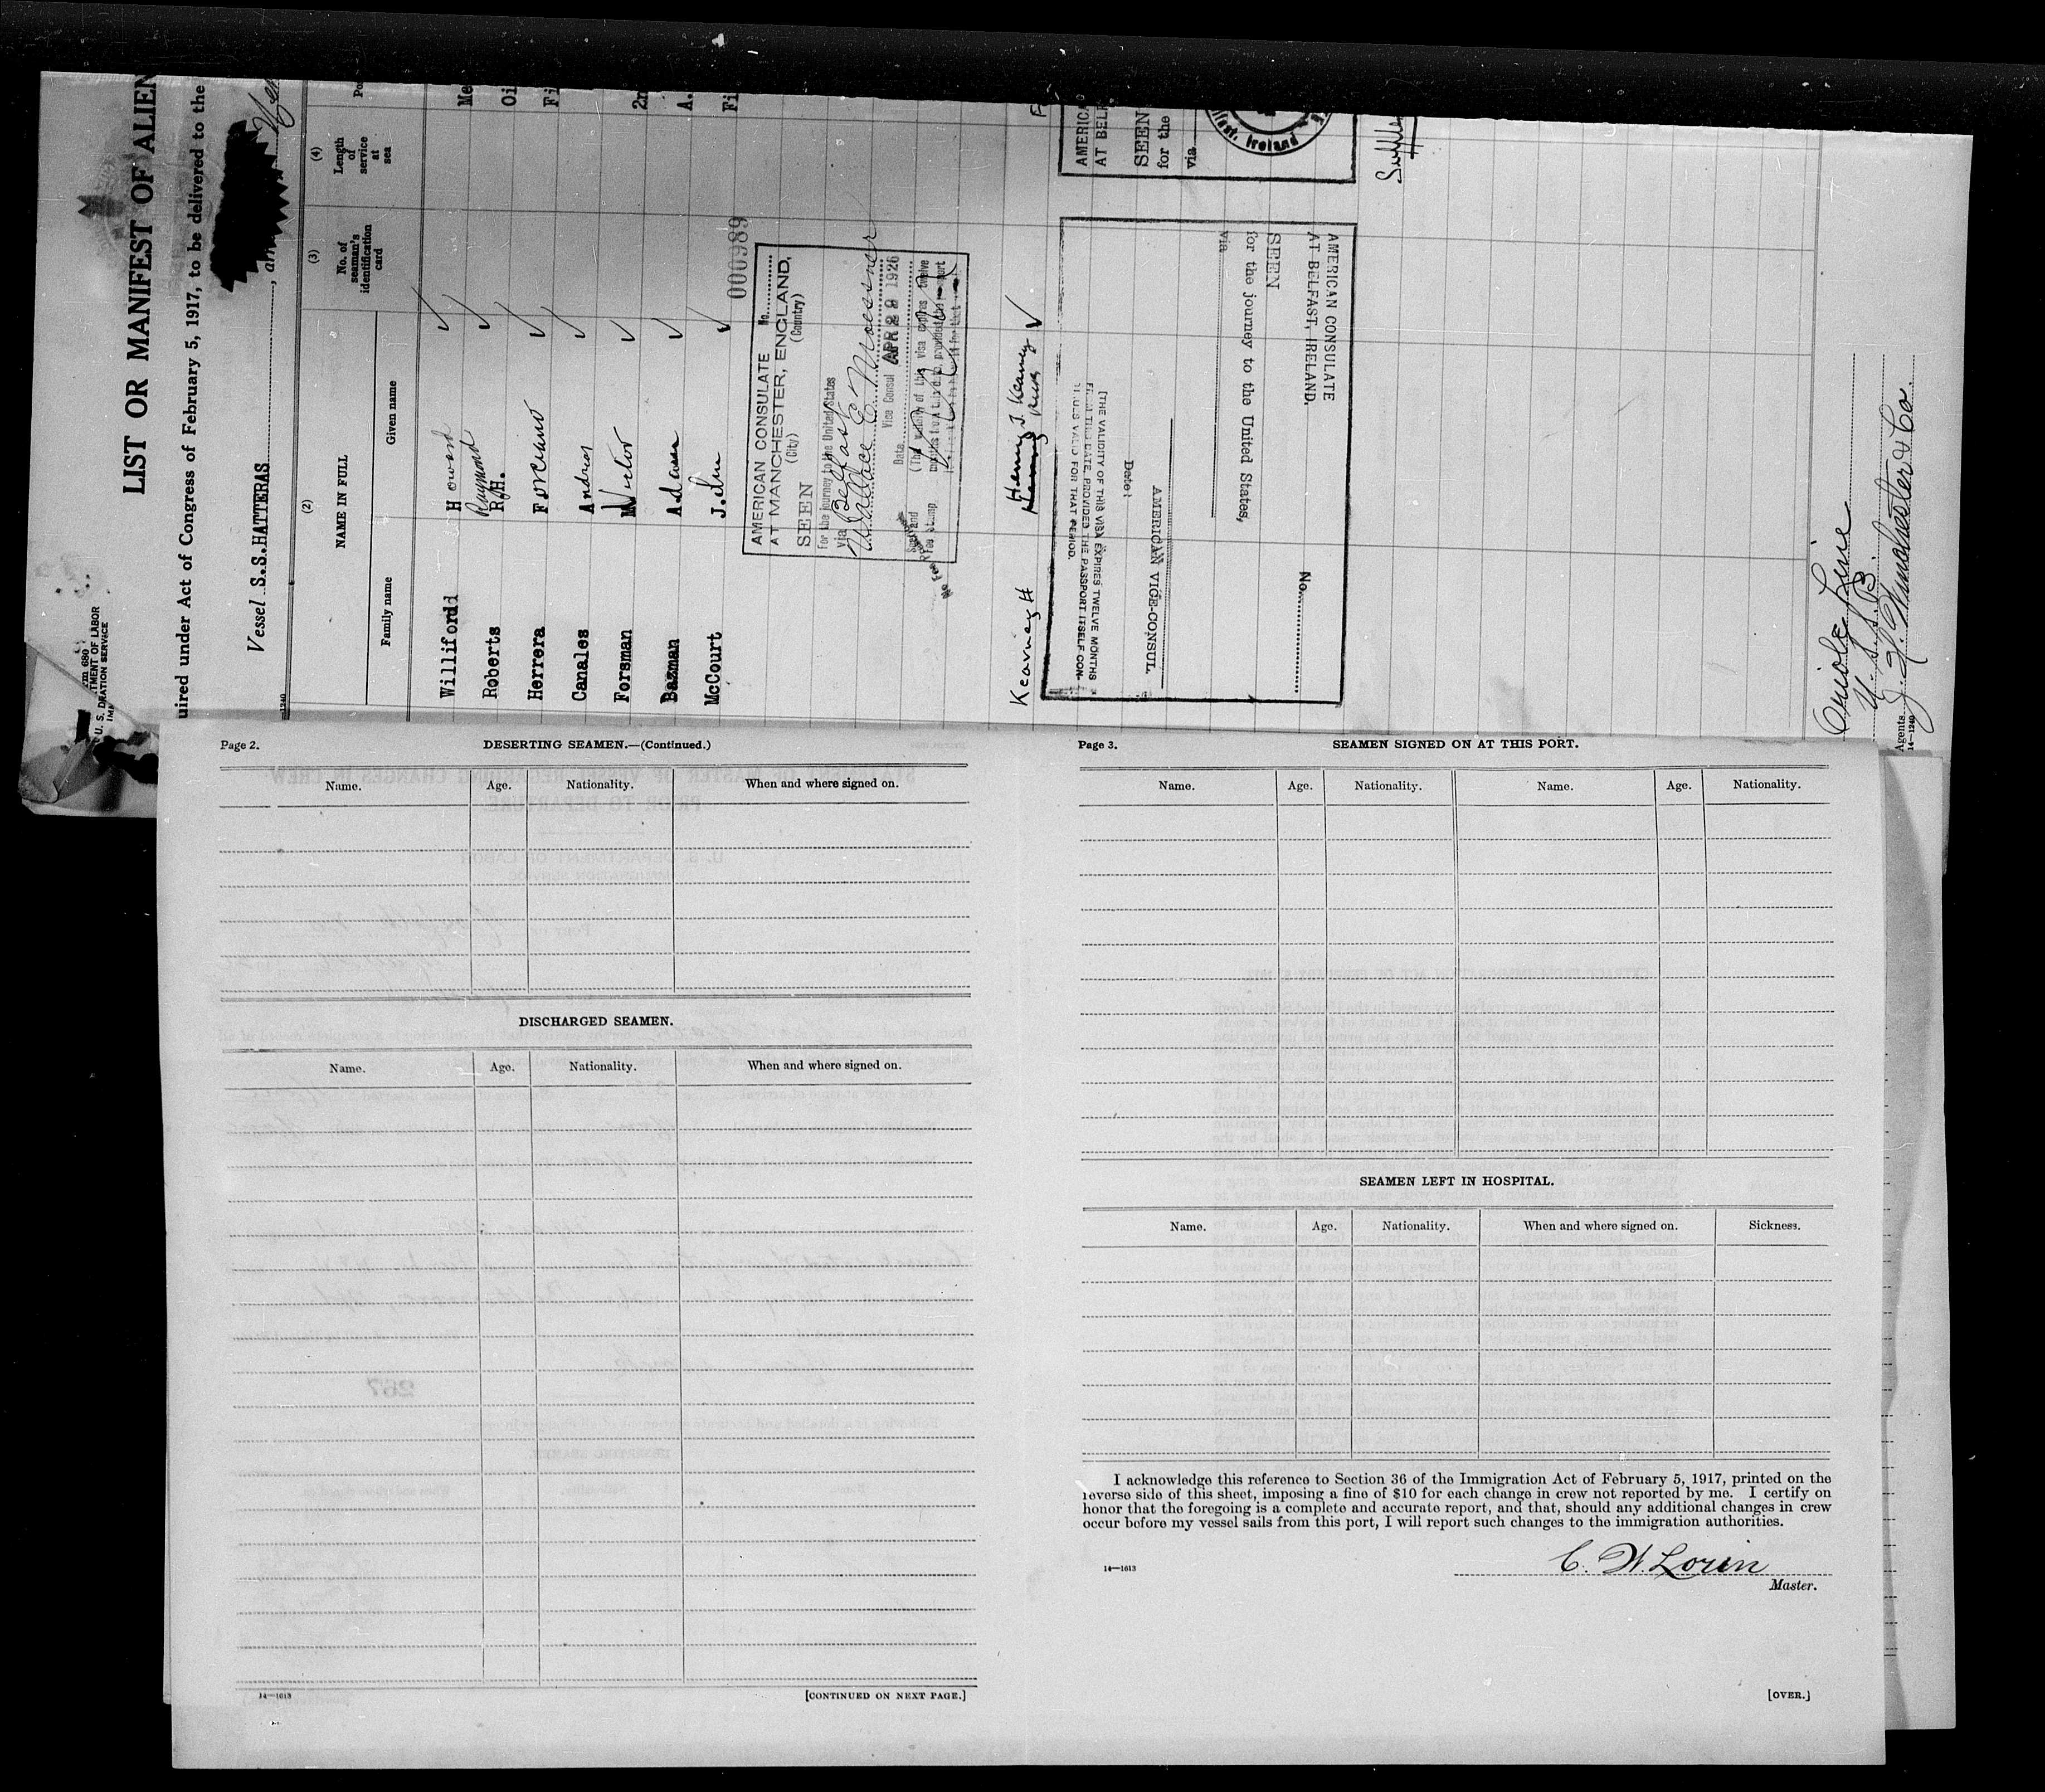 LIST OR MANIFEST OF ALIEN
uired under Act of Congress of February 5, 1917, to be delivered to the
Vessel S.S.HATTERAS
(2)
(3)
(4)
NAME IN FULL
No. of seaman's identification card
Length of service at sea
Family name
Given name
Williford Howard
Roberts Raymond R.H.
Herrera
Canales Andres
Forsman Victor
Bazman Adam
McCourt John
000989
AMERICAN CONSULATE
AT MANCHESTER, ENGLAND,
(City) (Country)
SEEN
For the journey to the United States
via Belfast
Wallace E Moessner
Vice Consul
Date APR 29 1926
Kearney H Henry J. Kearney
AMERICA
AT BELF
SEEN
for the
via
Ireland
AMERICAN CONSULATE
AT BELFAST, IRELAND.
SEEN
for the journey to the United States,
via
No.
Date:
AMERICAN VICE-CONSUL.
[THE VALIDITY OF THIS VISA EXPIRES TWELVE MONTHS
FROM THIS DATE, PROVIDED THE PASSPORT ITSELF CON-
TINUES VALID FOR THAT PERIOD.
Oriole Line
U. S. S. B
J. H. Winchester & Co.
Agents
14—1240
U. S. D
TMENT OF LABOR
RATION SERVICE
Page 2.
DESERTING SEAMEN.—(Continued.)
Name. Age. Nationality. When and where signed on.
DISCHARGED SEAMEN.
Name. Age. Nationality. When and where signed on.
14—1613
[CONTINUED ON NEXT PAGE.]
Page 3.
SEAMEN SIGNED ON AT THIS PORT.
Name. Age. Nationality. Name. Age. Nationality.
SEAMEN LEFT IN HOSPITAL.
Name. Age. Nationality. When and where signed on. Sickness.
I acknowledge this reference to Section 36 of the Immigration Act of February 5, 1917, printed on the
reverse side of this sheet, imposing a fine of $10 for each change in crew not reported by me. I certify on
honor that the foregoing is a complete and accurate report, and that, should any additional changes in crew
occur before my vessel sails from this port, I will report such changes to the immigration authorities.
C. W. Lorin
14—1613
Master.
[OVER.]